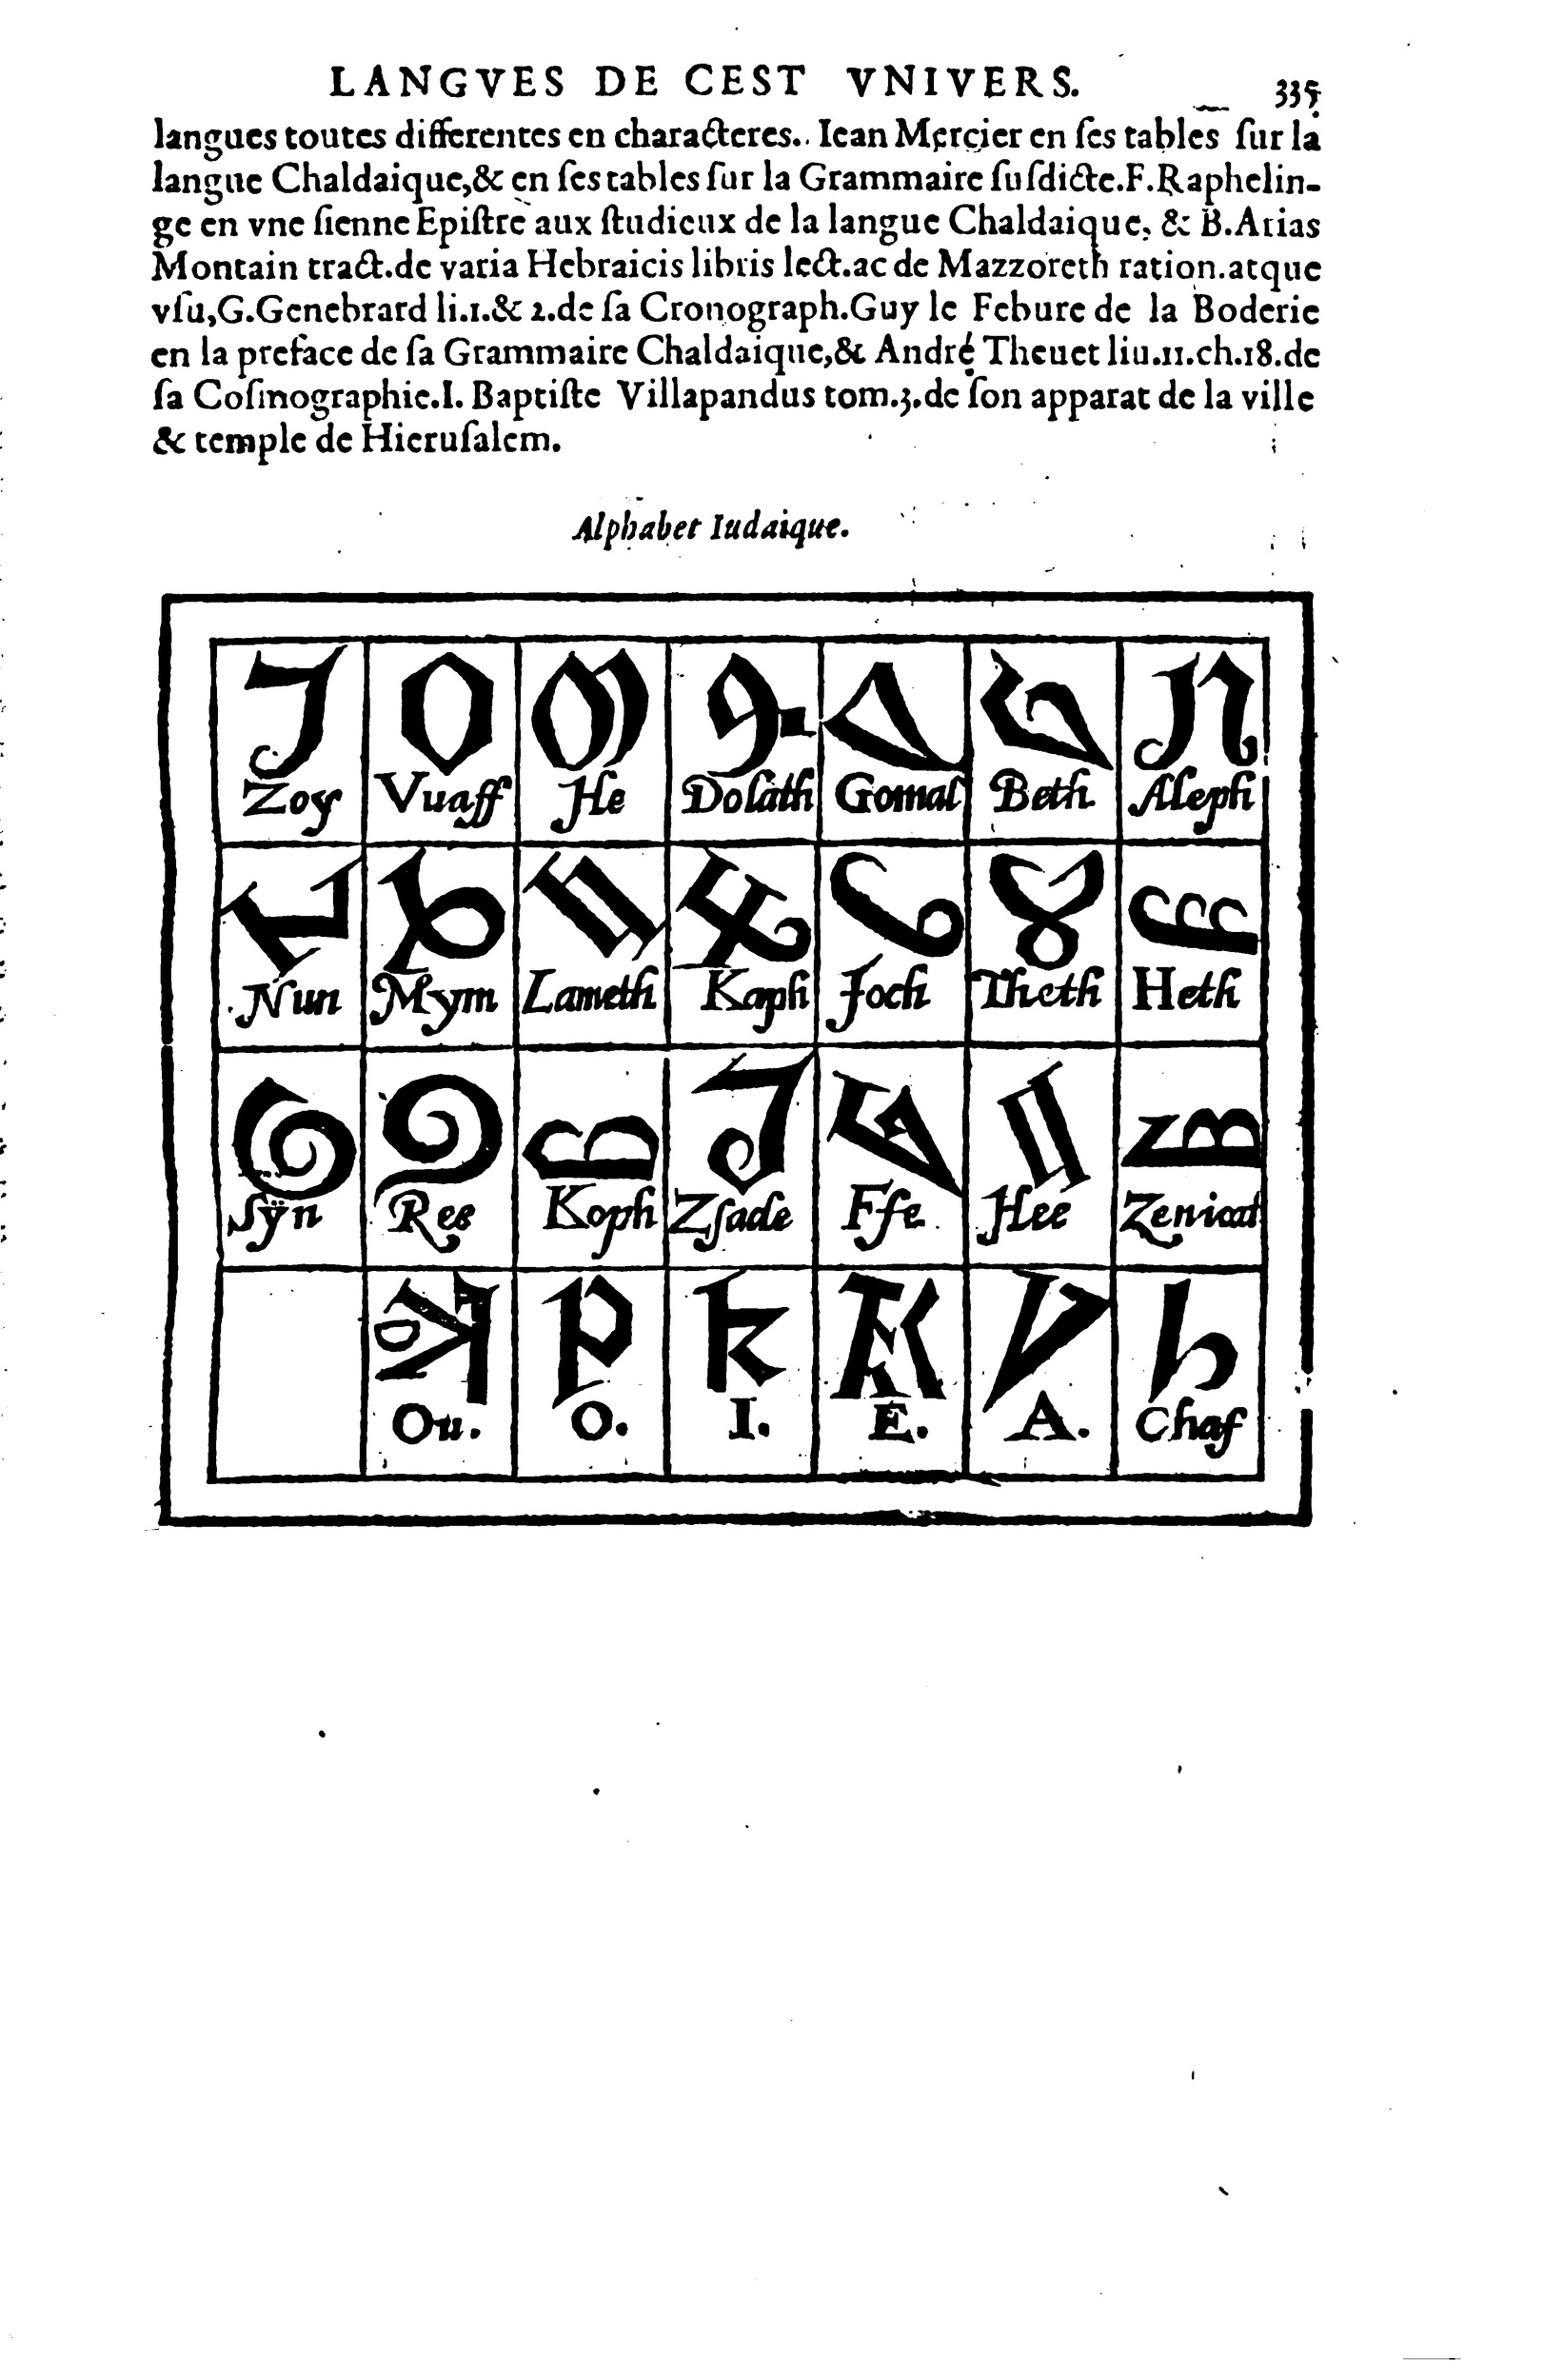 LANGVES DE CEST VNIVERS. 335
langues toutes differentes en characteres. Iean Mercier en ſes tables ſur la
langue Chaldaique,& en ſes tables ſur la Grammaire ſuſdicte.F.Raphelin-
ge en vne ſienne Epiſtre aux ſtudieux de la langue Chaldaique, & B.Arias
Montain tract.de varia Hebraicis libris lect.ac de Mazzoreth ration.atque
vſu,G.Genebrard li.1.& 2.de ſa Cronograph.Guy le Febure de la Boderie
en la preface de ſa Grammaire Chaldaique,& André Theuet liu.11.ch.18.de
ſa Coſmographie.I. Baptiſte Villapandus tom.3.de ſon apparat de la ville
& temple de Hieruſalem.
Alphabet Iudaique.
Zoy Vuaff He Dolath Gomal Beth Aleph
Nun Mym Lameth Kaph Joch Theth Heth
Sÿn Ree Koph Zſade Ffe Hee Zenicat
Ou. O. I. E. A. Chaf